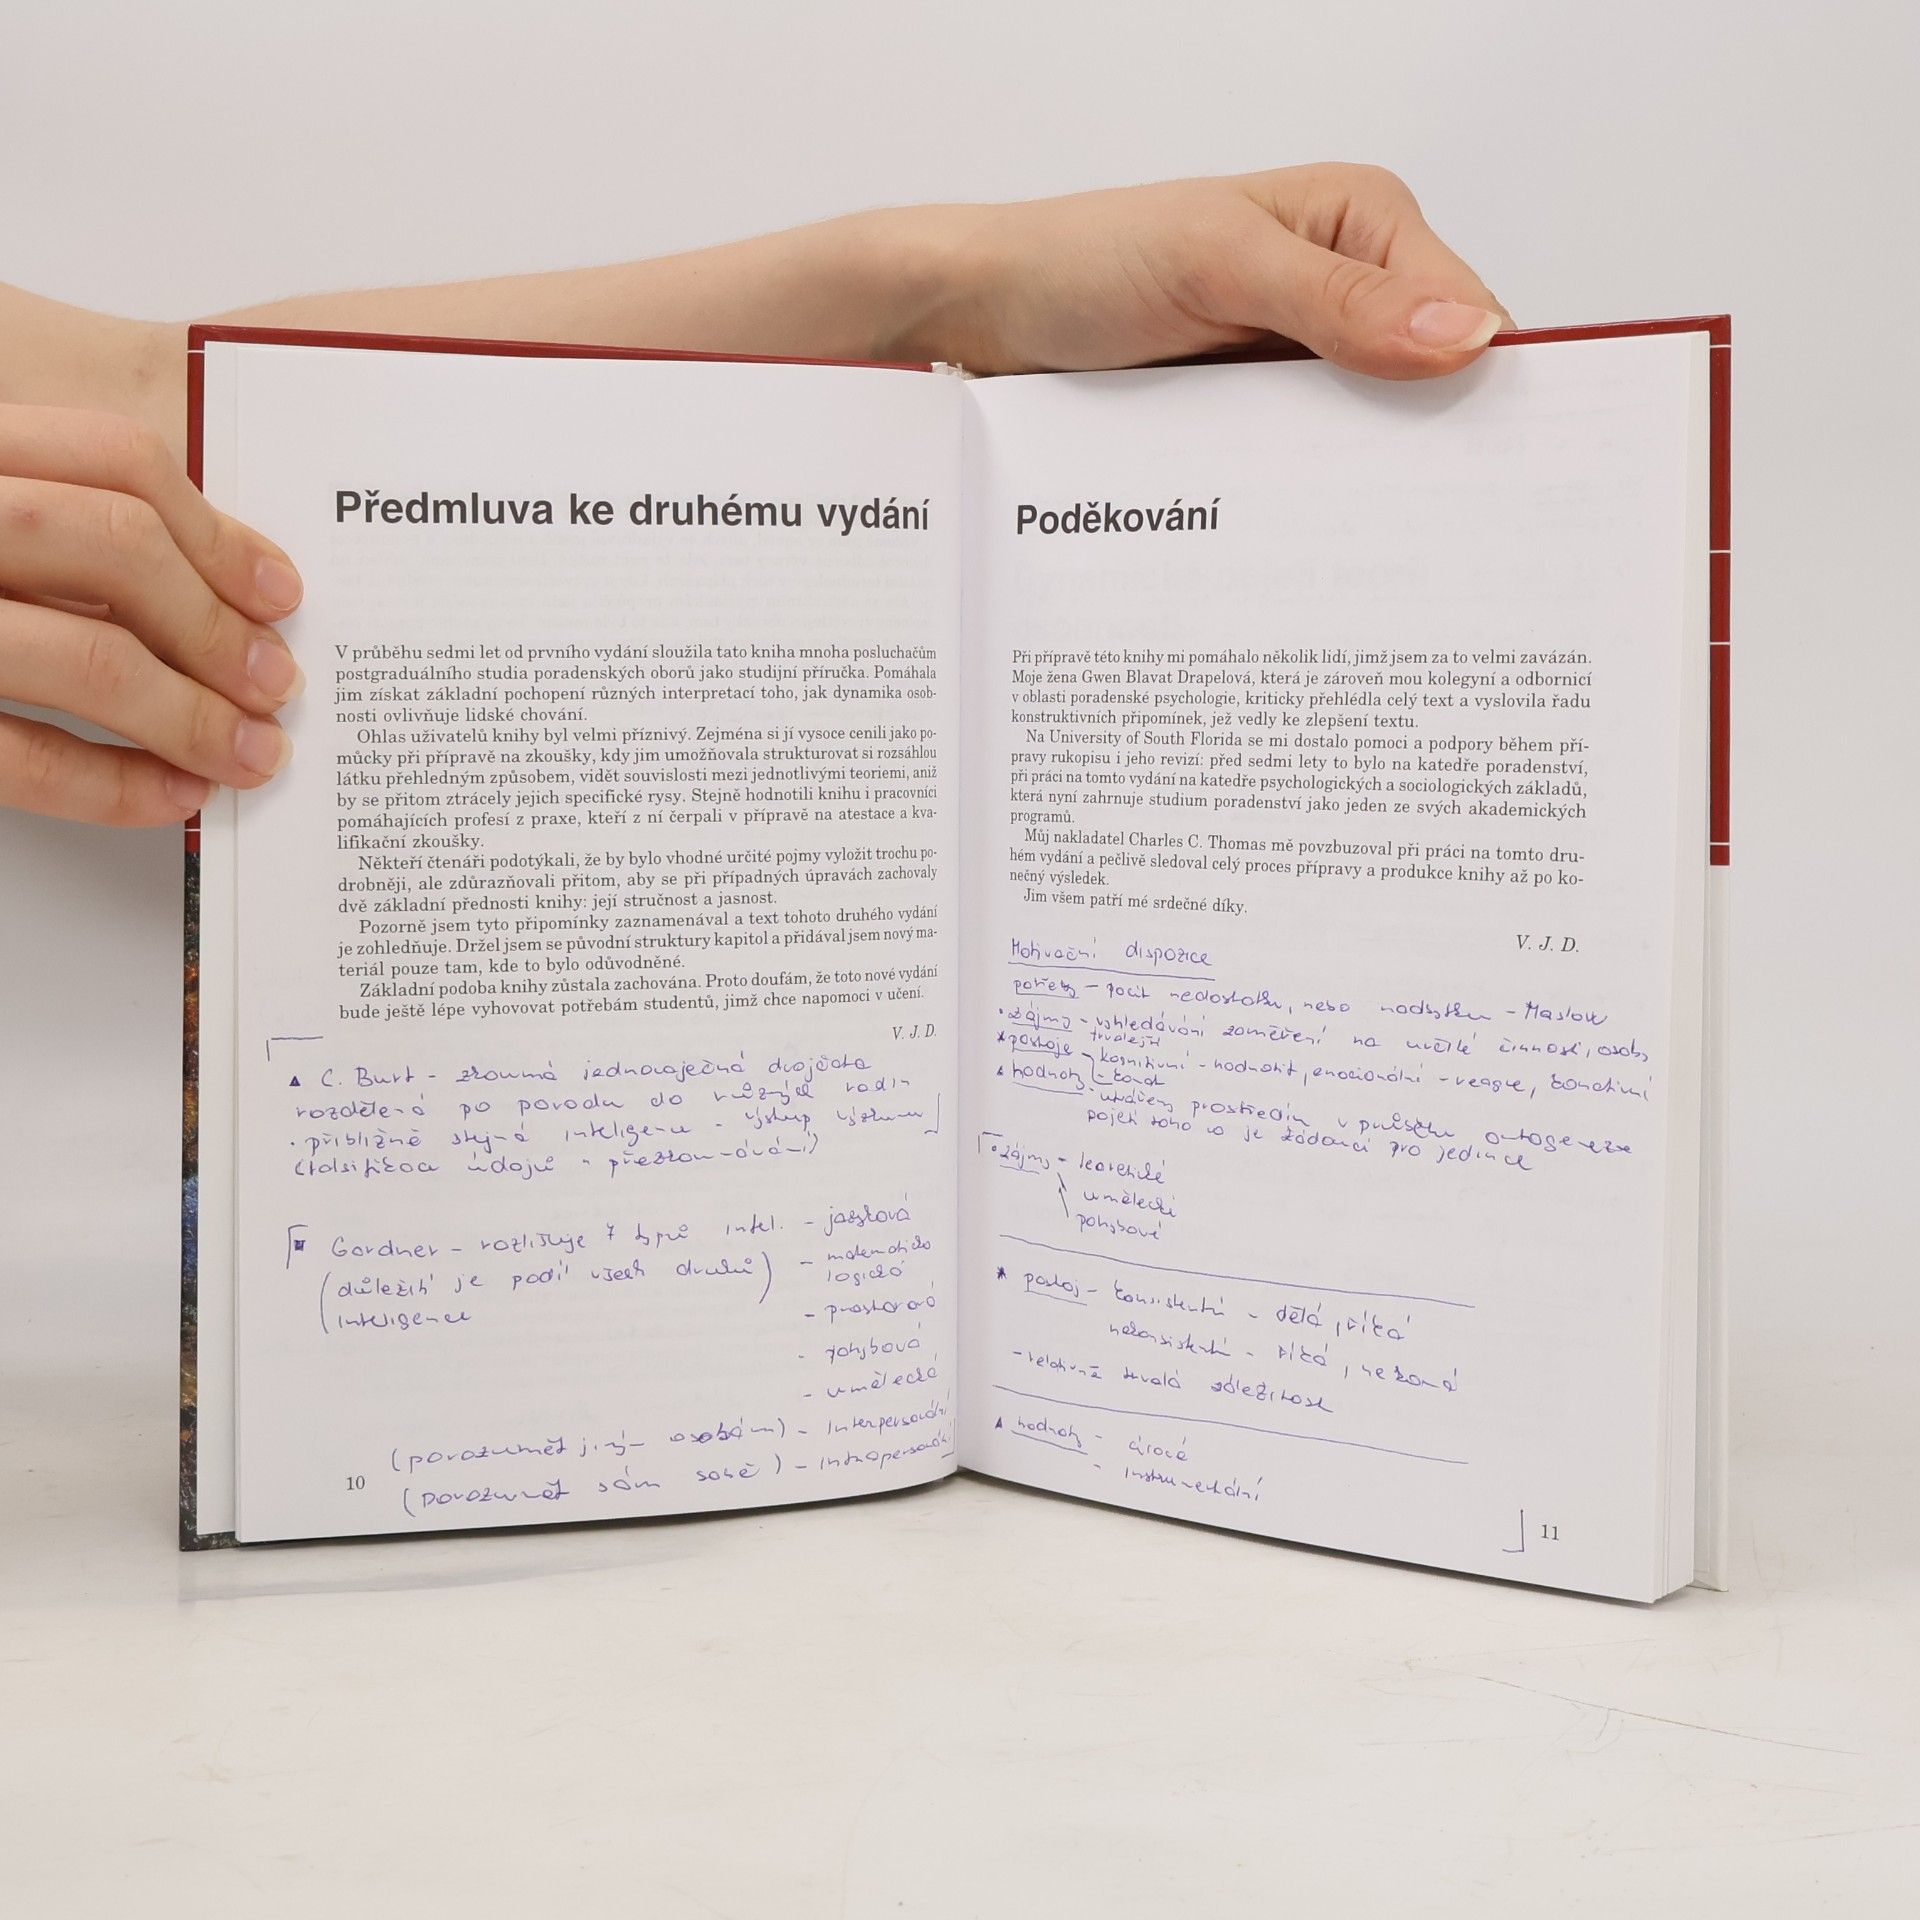 Předmluva ke druhému vydání
V průběhu sedmi let od prvního vydání sloužila tato kniha mnoha posluchačům
postgraduálního studia poradenských oborů jako studijní příručka. Pomáhala
jim získat základní pochopení různých interpretací toho, jak dynamika osob-
nosti ovlivňuje lidské chování.
Ohlas uživatelů knihy byl velmi příznivý. Zejména si jí vysoce cenili jako po-
můcky při přípravě na zkoušky, kdy jim umožňovala strukturovat si rozsáhlou
látku přehledným způsobem, vidět souvislosti mezi jednotlivými teoriemi, aniž
by se přitom ztrácely jejich specifické rysy. Stejně hodnotili knihu i pracovníci
pomáhajících profesí z praxe, kteří z ní čerpali v přípravě na atestace a kva-
lifikační zkoušky.
Někteří čtenáři podotýkali, že by bylo vhodné určité pojmy vyložit trochu po-
drobněji, ale zdůrazňovali přitom, aby se při případných úpravách zachovaly
dvě základní přednosti knihy: její stručnost a jasnost.
Pozorně jsem tyto připomínky zaznamenával a text tohoto druhého vydání
je zohledňuje. Držel jsem se původní struktury kapitol a přidával jsem nový ma-
teriál pouze tam, kde to bylo odůvodněné.
Základní podoba knihy zůstala zachována. Proto doufám, že toto nové vydání
bude ještě lépe vyhovovat potřebám studentů, jimž chce napomoci v učení.
V. J. D.
C. Burt - zkoumá jednovaječná dvojčata
rozdělená po porodu do různých rodin
• přibližně stejná inteligence - výstup výzkumu
(falsifikace údajů - přezkoumávání)
Gardner - rozlišuje 7 typů intel. - jazyková
(důležitý je podíl všech druhů) - matematicko
inteligence logická
- prostorová
- pohybová
- umělecká
(porozumět jiným osobám) - interpersonální
(porozumět sám sobě) - intrapersonální
10
Poděkování
Při přípravě této knihy mi pomáhalo několik lidí, jimž jsem za to velmi zavázán.
Moje žena Gwen Blavat Drapelová, která je zároveň mou kolegyní a odbornicí
v oblasti poradenské psychologie, kriticky přehlédla celý text a vyslovila řadu
konstruktivních připomínek, jež vedly ke zlepšení textu.
Na University of South Florida se mi dostalo pomoci a podpory během pří-
pravy rukopisu i jeho revizí: před sedmi lety to bylo na katedře poradenství,
při práci na tomto vydání na katedře psychologických a sociologických základů,
která nyní zahrnuje studium poradenství jako jeden ze svých akademických
programů.
Můj nakladatel Charles C. Thomas mě povzbuzoval při práci na tomto dru-
hém vydání a pečlivě sledoval celý proces přípravy a produkce knihy až po ko-
nečný výsledek.
Jim všem patří mé srdečné díky.
V. J. D.
Motivační dispozice
potřeby - pocit nedostatku, nebo nadbytku - Maslow
• zájmy - vyhledávání zaměření na určité činnosti, osoby
trvalejší
postoje kognitivní - hodnotit, emocionální - reague, konativní
hodnoty - konat
- utvářeny prostředím v průběhu ontogeneze
pojetí toho co je žádoucí pro jedince
• zájmy - teoretické
umělecké
pohybové
postoj - konsistentní - dělá, říká
nekonsistentní - říká, nekoná
- relativně trvalá záležitost
hodnoty - cílové
- instrumentální
11